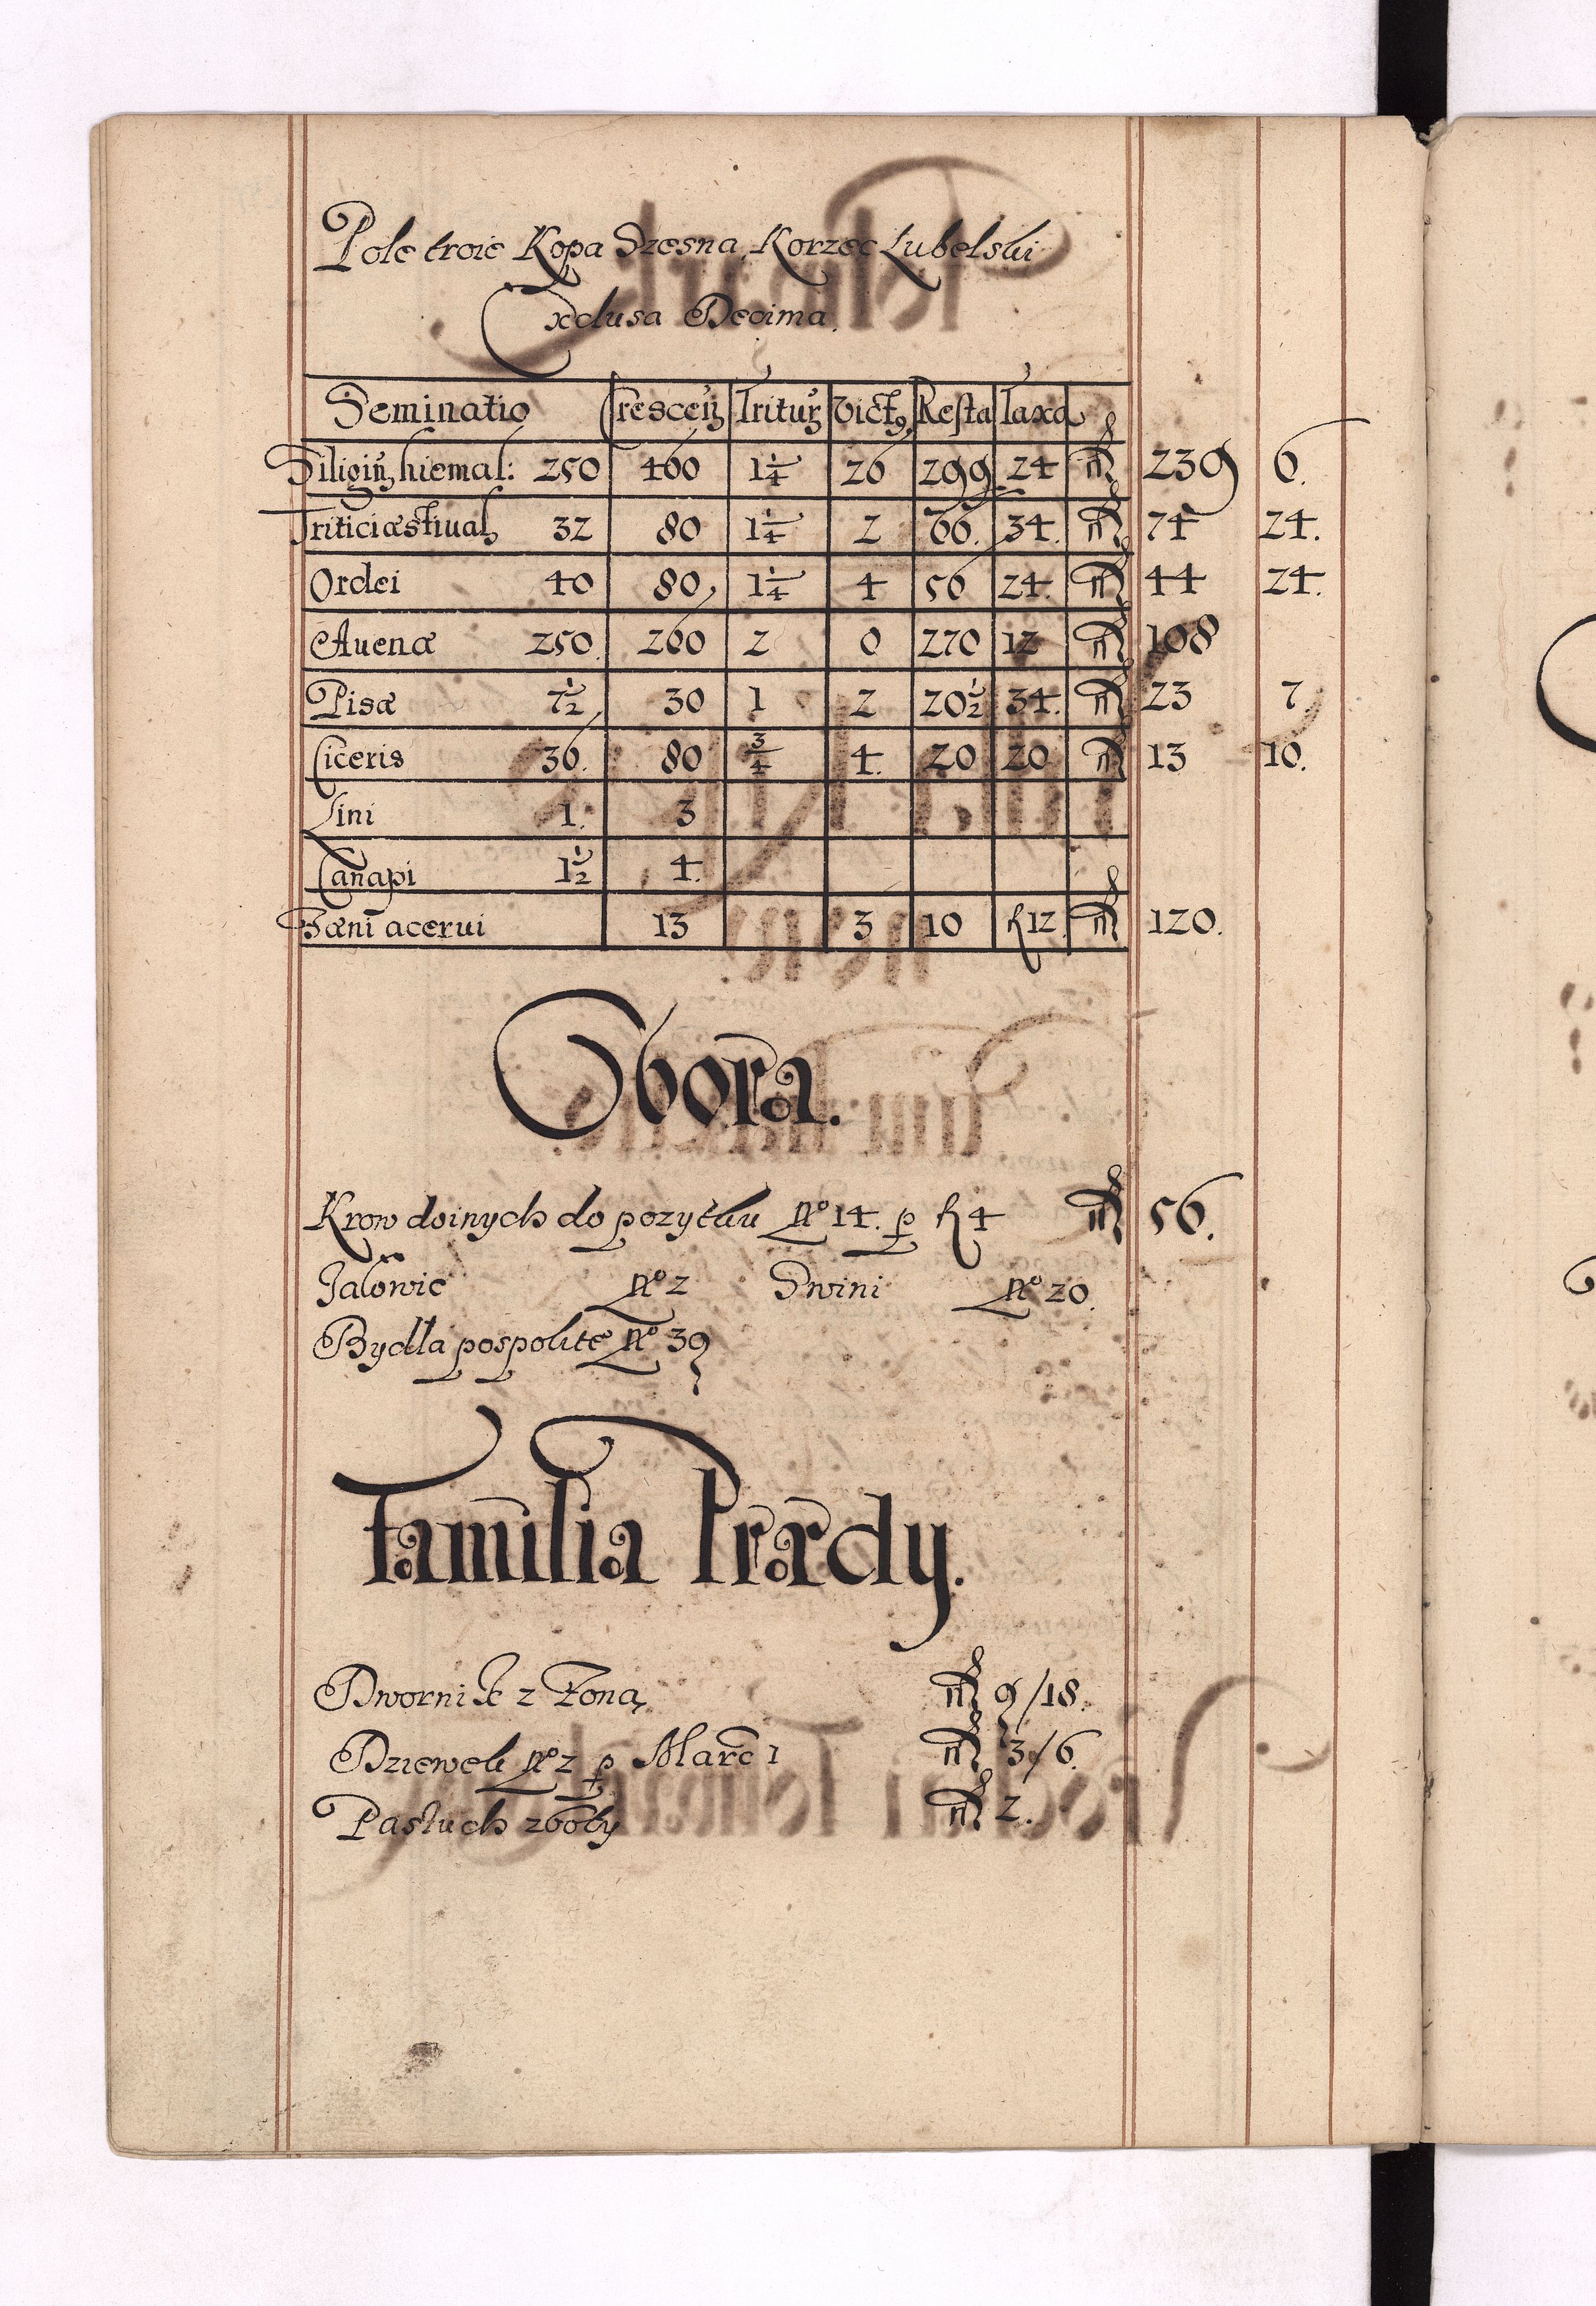 Pole troie Kopa Szesna Korzec Lubelski
Exclusa Decima.
Seminatio Crescen Tritur Vict Resta Taxa
Siligin hiemal: 250 460 1¼ 26 299 24 fl 239 6.
Tritici æstival 32 80 1¼ 2 66. 34. fl 74 24.
Ordei 40 80 1¼ 4 56 24. fl 44 24.
Auenæ 250. 260 2 0 270 12 fl 108
Pisæ 7½ 30 1 2 20½ 34. fl 23 7
Ciceris 36. 80 ¾ 4. 20 20 fl 13 10.
Lini 1. 3
Canapi 1½ 4.
Fæni acerui 13 3 10 f 12. fl 120.
Obora.
Krow doinych do pozytku No 14. p f 4 fl 56.
Jalowic No 2 Swini No 20.
Bydla pospolite No 39
Familia Prædy.
Dwornik z Zoną fl 9/18.
Dziewek No 2 p Marc 1 fl 3/6.
Pastuch zboty fl 2.